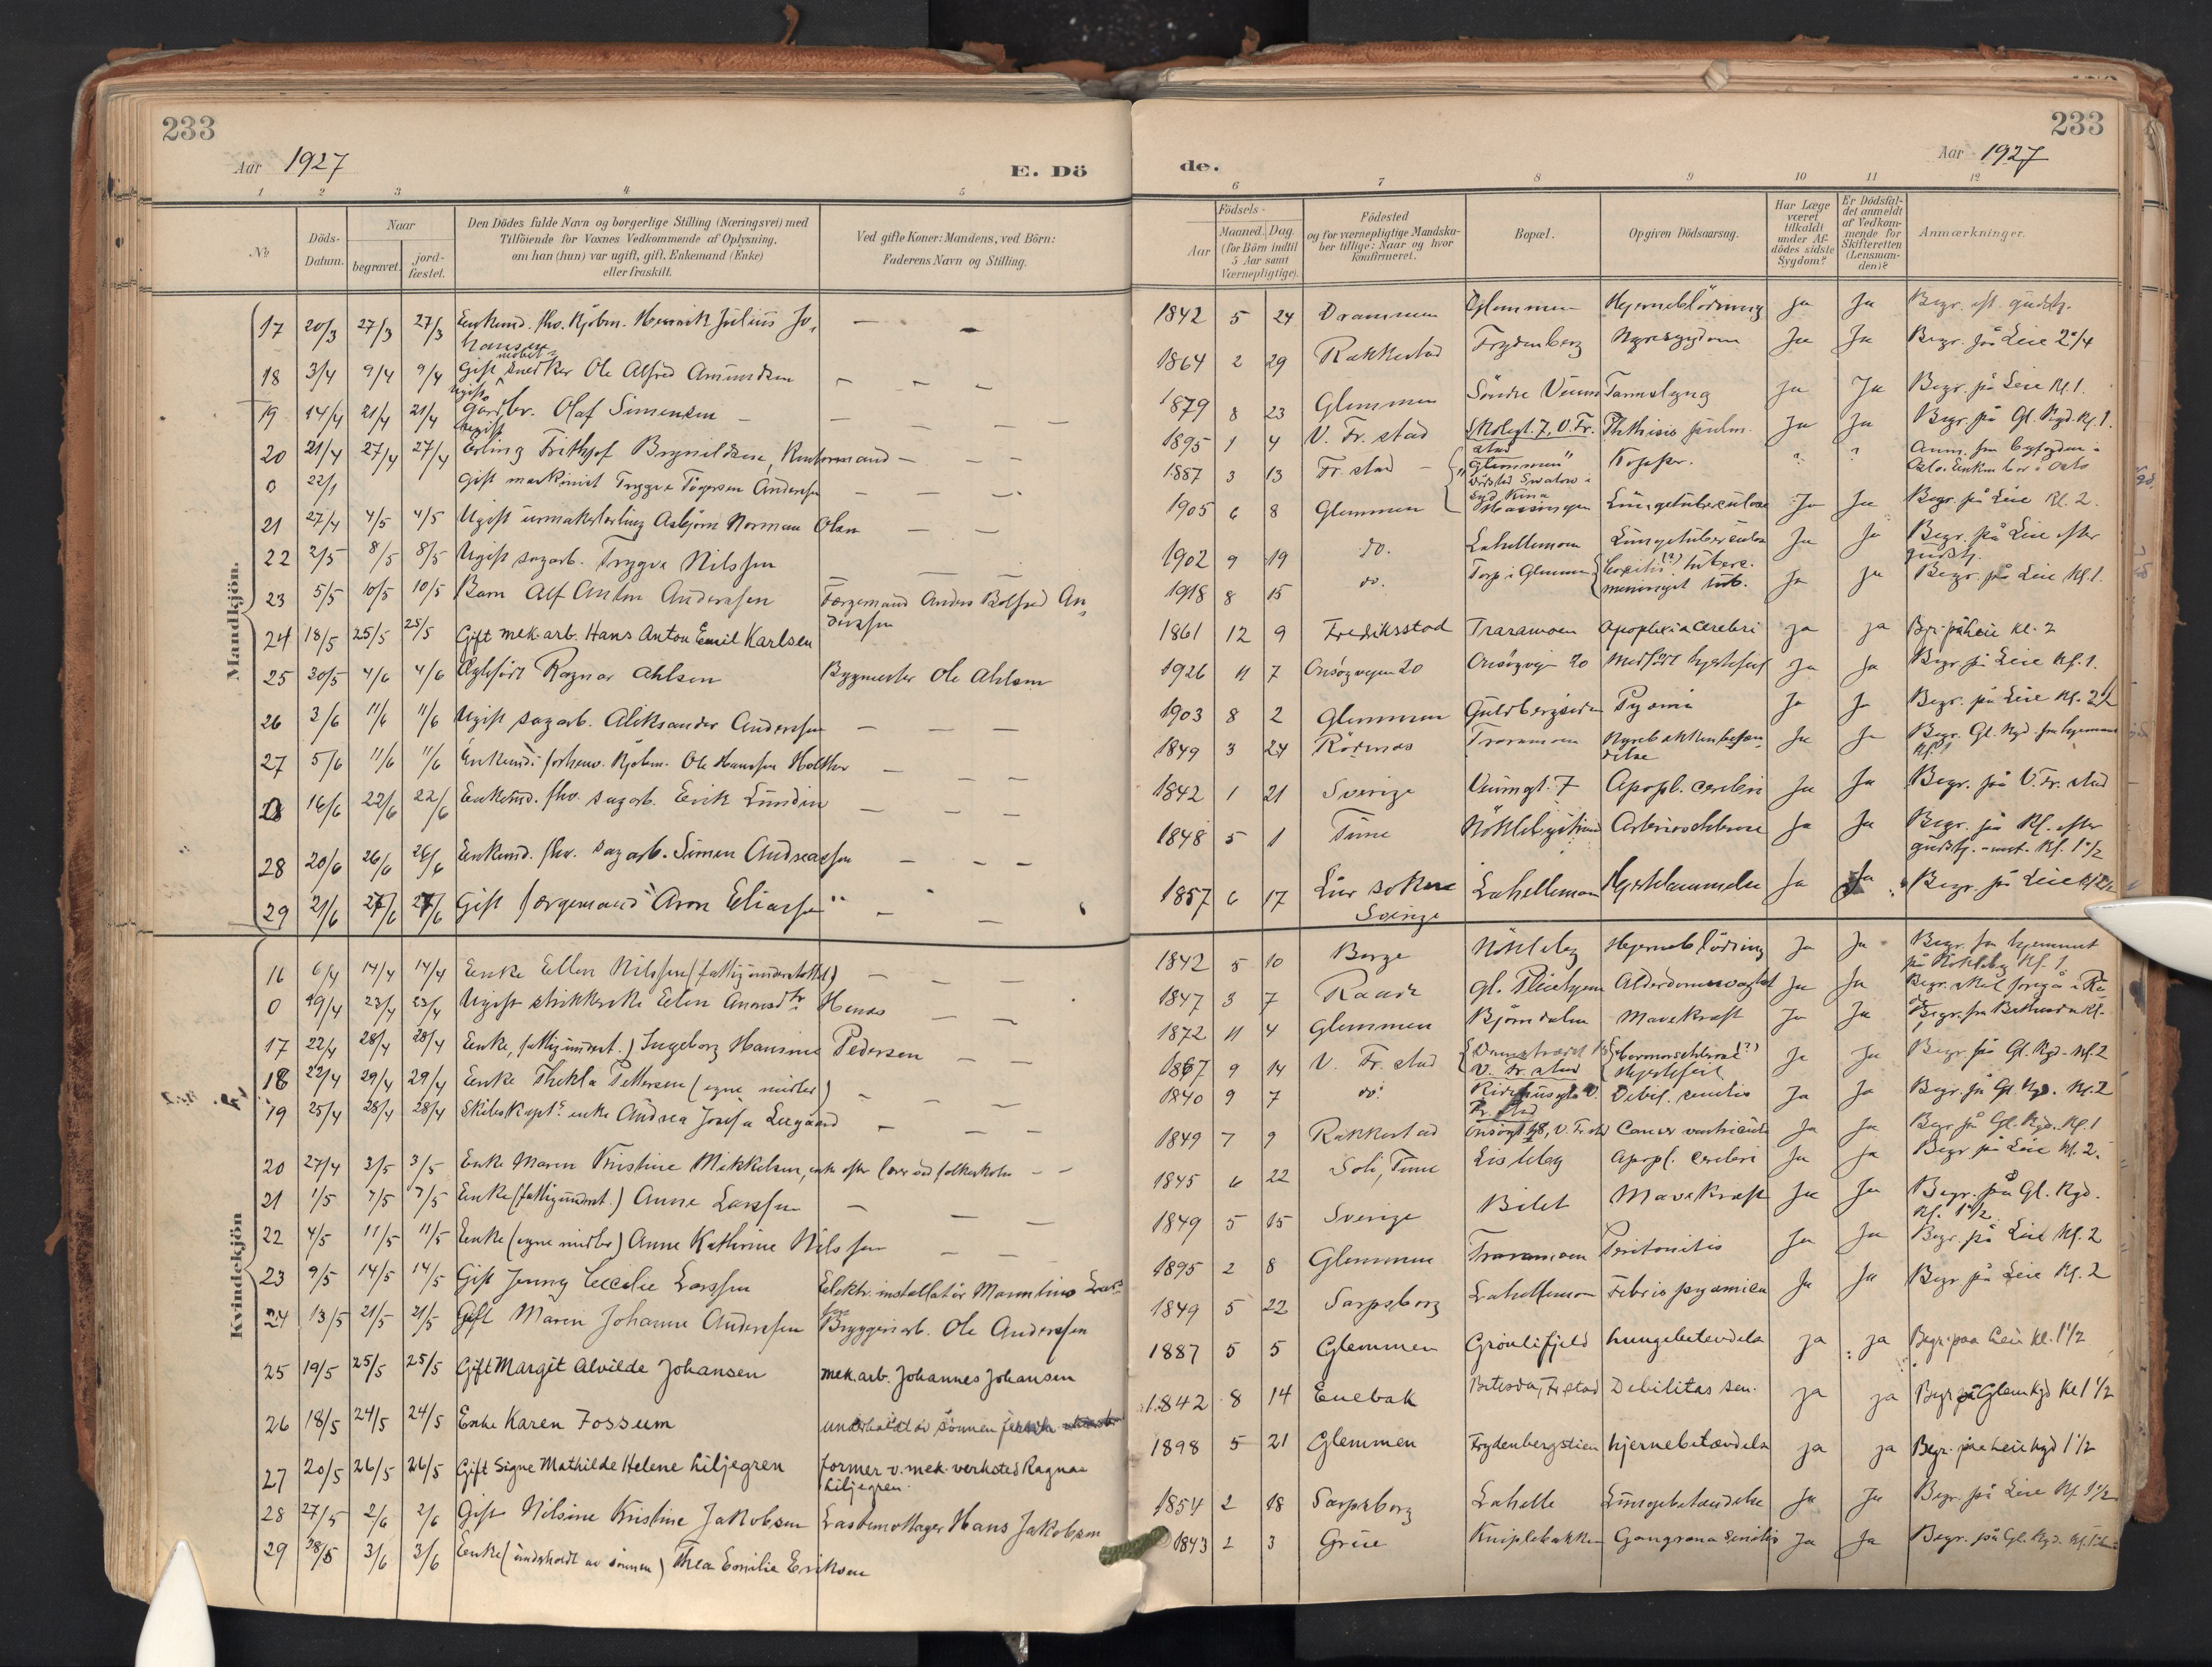 233
Aar 1927
E. Dö
1 2 3 4 5
№ Döds-Datum. Naar begravet. jord-fæstet. Den Dödes fulde Navn og borgerlige Stilling (Næringsvei) med Tilföiende for Voxnes Vedkommende af Oplysning, om han (hun) var ugift, gift, Enkemand (Enke) eller fraskilt. Ved gifte Koner: Mandens, ved Börn: Faderens Navn og Stilling.
Mandkjön.
17 20/3 27/3 27/3 Enkemd. fhv. Kjöbm. Henrik Julius Jo-
hansen
18 3/4 9/4 9/4 Gift møbelsnedker Ole Alfred Amundsen
19 14/4 21/4 21/4 Ugift gardbr. Olaf Simensen
20 21/4 27/4 27/4 Ugift Erling Frithjof Brynildsen, Kontormand
0 22/1 Gift maskinist Trygve Andersen
21 27/4 4/5 4/5 Ugift urmakerlærling Asbjörn Norman Olsen
22 2/5 8/5 8/5 Ugift sagarb. Trygve Nilssen
23 5/5 10/5 10/5 Barn Alf Anton Anderssen Færgemand Anders Bolfred An-
derssen
24 18/5 25/5 25/5 Gift mek. arb. Hans Anton Emil Karlsen
25 30/5 4/6 4/6 Ægtefödt Ragnar Ahlsen Bygmester Ole Ahlsen
26 3/6 11/6 11/6 Ugift sagarb. Aleksander Anderssen
27 5/6 11/6 11/6 Enkemd. forhenv. Kjöbm. Ole Hanssen Holther
28 16/6 22/6 22/6 Enkemd. fhv. sagarb. Erik Lundin
28 20/6 26/6 26/6 Enkemd. fhv. sagarb. Simen Andreassen
29 21/6 27/6 27/6 Gift færgemand Aron Eliassen
Kvindekjön
16 6/4 14/4 14/4 Enke Ellen Nilssen (fattigunderstöttet)
0 19/4 23/4 23/4 Ugift strikkerske Elen Amundsdtr. Henes
17 22/4 28/4 28/4 Enke, (fattigunderst.) Ingeborg Hansine Pedersen
18 23/4 29/4 29/4 Enke Thekla Pettersen (egne midler)
19 25/4 28/4 28/4 Skibskapt. enke Andrea Josefa Leegaard
20 27/4 3/5 3/5 Enke Maren Kristine Mikkelsen, enke efter lærer ved folkeskolen
21 1/5 7/5 7/5 Enke (fattigunderst.) Anne Larssen
22 4/5 11/5 11/5 Enke (egne midler) Anne Kathrine Nilssen
23 9/5 14/5 14/5 Gift Jenny Cecilie Larssen Elektr. installatör Mauntius Lars-
sen
24 13/5 21/5 21/5 Gift Maren Johanne Anderssen Bryggeriarb. Ole Anderssen
25 19/5 25/5 25/5 Gift Margit Alvilde Johansen mek. arb. Johannes Johansen
26 18/5 24/5 24/5 Enke Karen Fossum underholdt av sönnen
27 20/5 26/5 26/5 Gift Signe Mathilde Helene Liljegren former v. mek. verksted Ragnar
Liljegren.
28 27/5 2/6 2/6 Gift Nilsine Kristine Jakobsen Lastemottager Hans Jakobsen
29 28/5 3/6 3/6 Enke (underholdt av sönnen) Thea Emilie Eriksen
233
Aar 1927
de.
6 7 8 9 10 11 12
Födsels- Aar Maaned. Dag. (for Börn indtil 5 Aar samt Værnepligtige). Födested og for værnepligtige Mandskaber tillige: Naar og hvor konfirmeret. Bopæl. Opgiven Dödsaarsag. Har Læge været tilkaldt under Afdödes sidste Sygdom? Er Dödsfaldet anmeldt af Vedkommende for Skifteretten (Lensmanden)? Anmærkninger.
1842 5 24 Drammen Glemmen Hjerneblödning Ja Ja Begr. eft. gudstj.
1864 2 29 Rakkestad Frydenberg Nyresygdom Ja Ja Begr. på Leie
1879 8 23 Glemmen Söndre Veum Tarmslyng Ja Ja Begr. på Leie Kl. 1.
1895 1 4 V. Fr. stad Skolegt. 7, V. Fr. stad Phthisis pulm. Ja Ja Begr. på Gl. Kgd. Kl. 1.
1887 3 13 Fr. stad "Glemmen" Dödsted Swatow i Syd Kina Kopper. ? ? Anm. fra byfogden i Oslo. Enken bor i Oslo
1905 6 8 Glemmen Lungetuberculose Ja Ja Begr. på Leie Kl. 2.
1902 9 19 do. Lahellemoen Lungetuberculose Ja Ja Begr. på Leie efter gudstj.
1918 8 15 do. Torp i Glemmen Coxitis (?) tuberc. meningit tub. Ja Ja Begr. på Leie Kl. 1.
1861 12 9 Fredriksstad Traramoen Apoplexia cerebri ja ja Bgr. på Leie kl. 2
1926 11 7 Onsögveien 20 Onsögveien 20 Medfödt hjertefeil Ja Ja Begr. på Leie Kl. 1.
1903 8 2 Glemmen Guldbergsiden Pyæmi Ja Ja Begr. på Leie Kl. 2 1/2
1849 3 24 Rödenes Traramoen Nyrebækkenbetæn-
delse Ja Ja Begr. Gl. Kgd. fra hjemmet Kl. 1
1842 1 21 Sverige Veumgt. 7 Apopl. cerebri Ja Ja Begr. på V. Fr. stad
1848 5 1 Tune Nökleby Arteriosclerose Ja Ja Begr. på Kl. efter gudstj. Kl. 1 1/2
1857 6 17 Sverige Lahellemoen Hjertelammelse Ja Ja Begr. på Leie
1842 5 10 Borge Nökleby Hjerneblödning Ja Ja Begr. fra hjemmet på Nökleby Kl. 1
1847 3 7 Raade Gl. Pleiehjem Alderdomssvaghet Ja Ja Begr. skal foregå i Rå-
de
1872 11 4 Glemmen Björndalen Mavekræft Ja Ja Begr. fra Bethesda Kl. 1
1867 9 14 V. Fr. stad V. Fr. stad (?) Hjertefeil Ja Ja Begr. på Gl. Kgd. Kl. 2
1840 9 7 do. V. Fr. stad Debil. senilis Ja Ja Begr. på Gl. Kgd. Kl. 2
1849 7 9 Rakkestad V. Fr. stad Cancer ventriculi Ja Ja Begr. på Gl. Kgd. Kl. 1
1845 6 22 Soli, Tune Lisleby Apopl. cerebri Ja Ja Begr. på Leie Kl. 2.
1849 5 15 Sverige Bilet Mavekræft Ja Ja Begr. på Gl. Kgd. Kl. 1 1/2
1895 2 8 Glemmen Traramoen Peritonitis Ja Ja Begr. på Leie Kl. 2
1849 5 22 Sarpsborg Lahellemoen Febris pyæmica Ja Ja Begr. på Leie Kl. 2
1887 5 5 Glemmen Grönlifjeld Lungebetændelse ja ja Begr. paa Leie kl. 1 1/2
1842 8 14 Enebak Betesda, Fr. stad Debilitas sen. ja ja Begr. på Glem kgd kl 1 1/2
1898 5 21 Glemmen Frydenbergstien hjernebetændelse ja ja Begr. paa Leie kgd 1 1/2
1854 2 18 Sarpsborg Lahelle Lungebetændelse Ja Ja Begr. på Leie Kl. 1 1/2
1843 2 3 Grue Kniplebakken Gangræna senilis Ja Ja Begr. på Gl. Kgd.